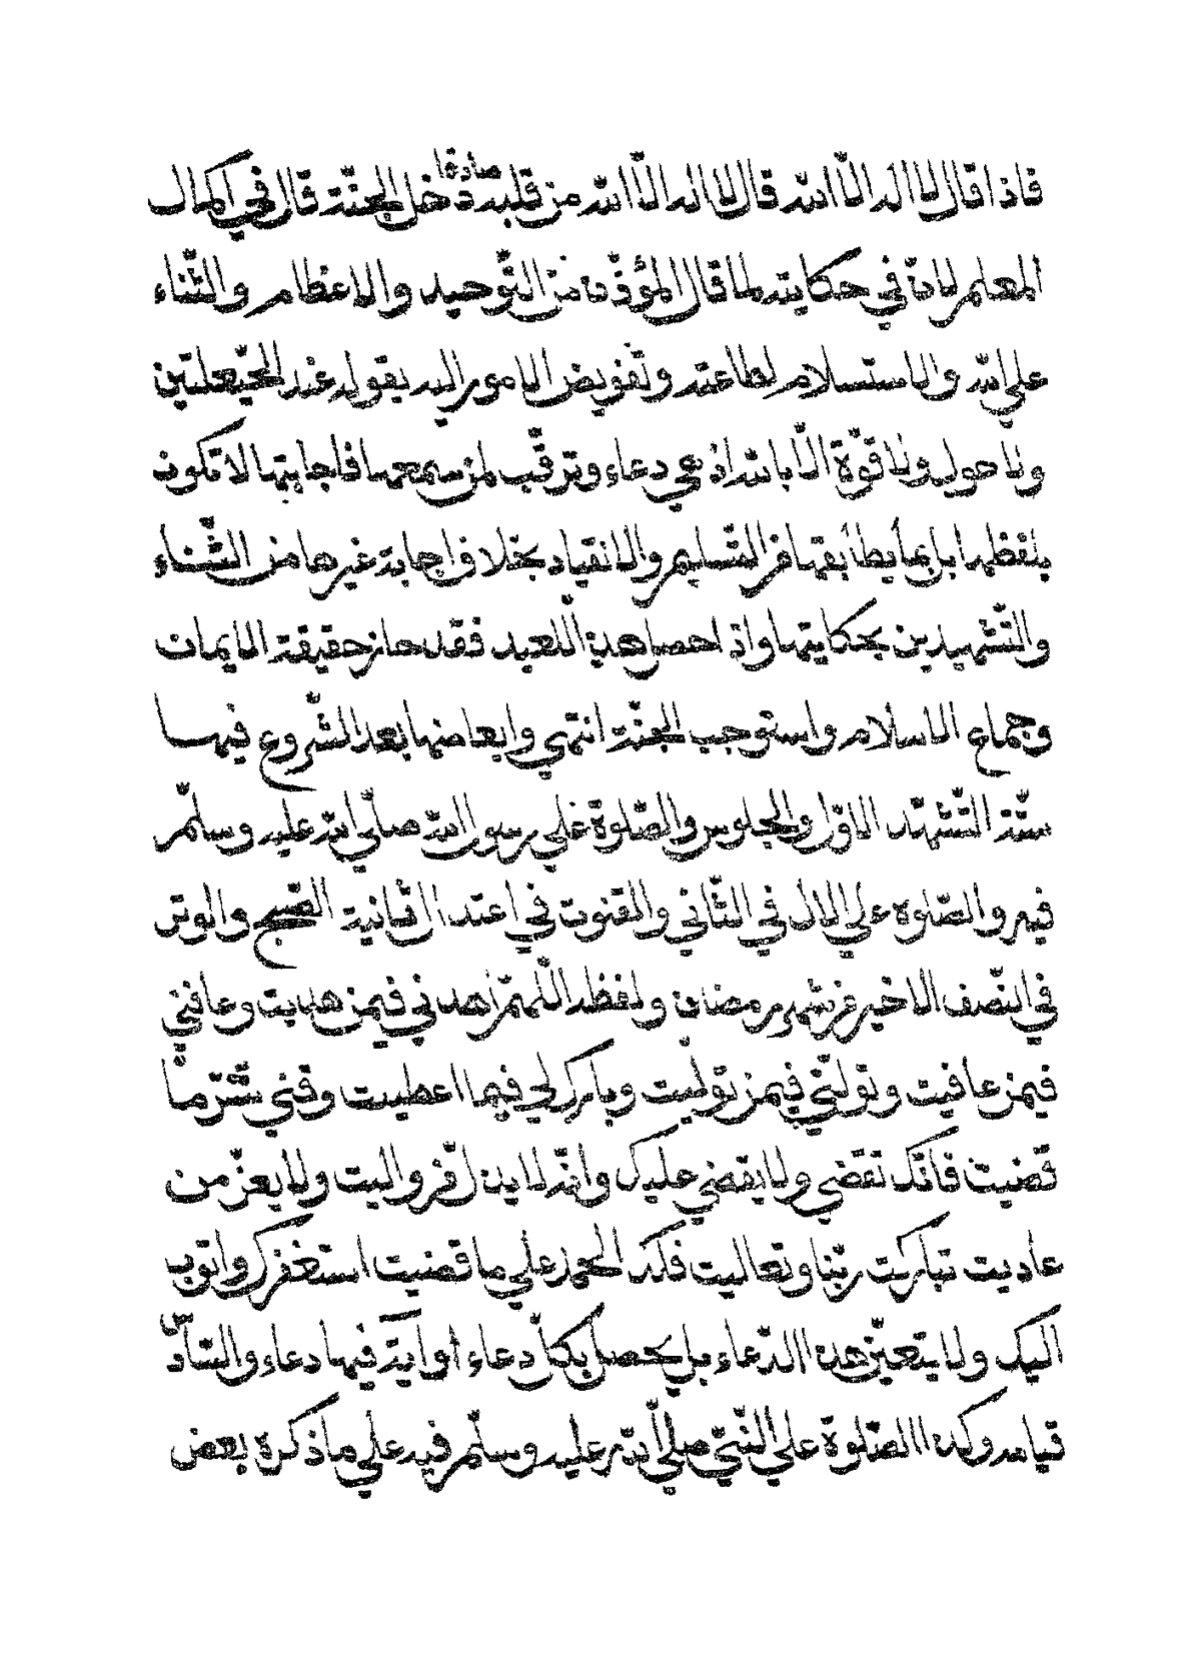 فاذا قال لا اله الّا الله قال لا اله الّا الله من قلبه صادقا دخل الجنّة قال في اكمال
المعلم لانّ في حكايته لما قال المؤذّن من التّوحيد والاعظام والثّناء
علي الله والاستسلام لطاعته وتفويض الامور اليه يقوله عند الحيّعلتين
ولا حول ولا قوّة الّا بالله اذ هي دعاء وترقّب لمن سمعها فاجابتها لا تكون
بلفظها بل بما يطابقها من التّسليم والانقياد بخلاف اجابة غيرها من الثّناء
والتّشهدين بحكايتها واذا حصل هذا للعبد فقد حاز حقيقة الايمان
وجماع الاسلام واستوجب الجنّة انتهي وابعاضها بعد الشّروع فيها
ستّة التّشهّد الاوّل والجلوس والصّلوة علي رسول الله صلّي الله عليه وسلّم
فيه والصّلوة علي الال في الثّاني والقنوت في اعتدال ثانية الصّبح والوتر
في النّصف الاخير من شهر رمضان ولفظه اللّهمّ اهدني فيمن هديت وعافني
فيمن عافيت وتولّني فيمن تولّيت وبارك لي فيما اعطيت وقني شرّ ما
قضيت فانّك تقضي ولا يقضي عليك وانّه لا يذلّ من واليت ولا يعزّ من
عاديت تباركت ربّنا وتعاليت فلك الحمد علي ما قضيت استغفرك واتوب
اليك ولا يتعيّن هذا الدّعاء بل يحصل بكلّ دعاء او اية فيها دعاء والسّادس
قيامه وكذا الصّلوة علي النّبيّ صلّي الله عليه وسلّم فيه علي ما ذكره بعض